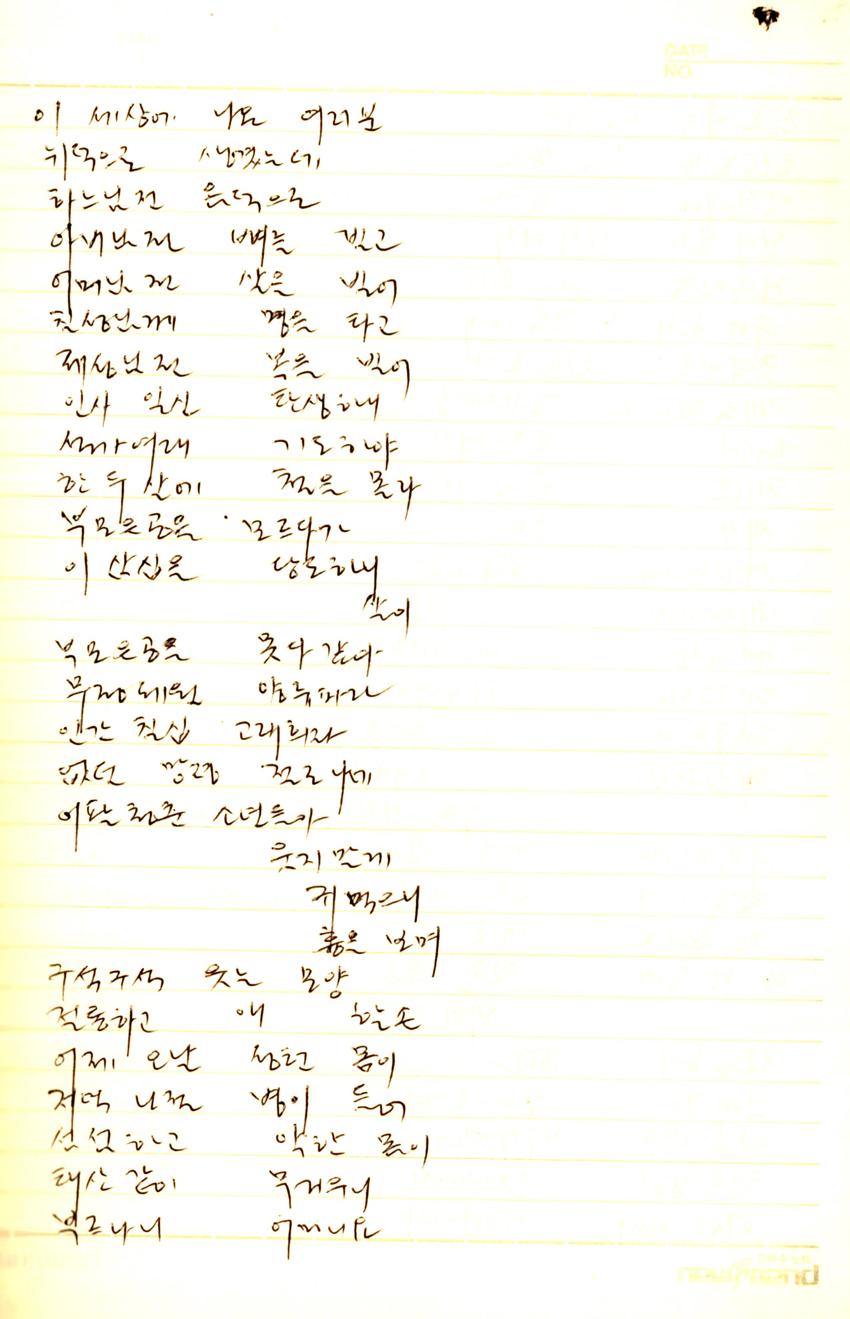 DATE
NO
이 세상에 나온 여러분
뉘덕으로 생겼는데
하느님전 은덕으로
아버님전 뼈를 빌고
어머님전 살을 빌어
칠성님께 명을 타고
제상님전 복을 빌어
인사 일신 탄생하내
석가여래 기도하야
한 두 살에 철을 몰라
부모은공을 모르다가
이 삼십을 당도하니
살이
부모은공을 못다 갚아
무정세월 양류파라
인간 칠십 고래희라
없던 망령 절로나네
이팔청춘 소년들아
웃지 말게
귀 먹으니
흉을 보며
구석구석 웃는 모양
절통하고 애 한손
어제 오날 성턴 몸이
저녁 나절 병이 들어
선선하고 약한 몸이
태산같이 무거우니
부르나니 어머니요